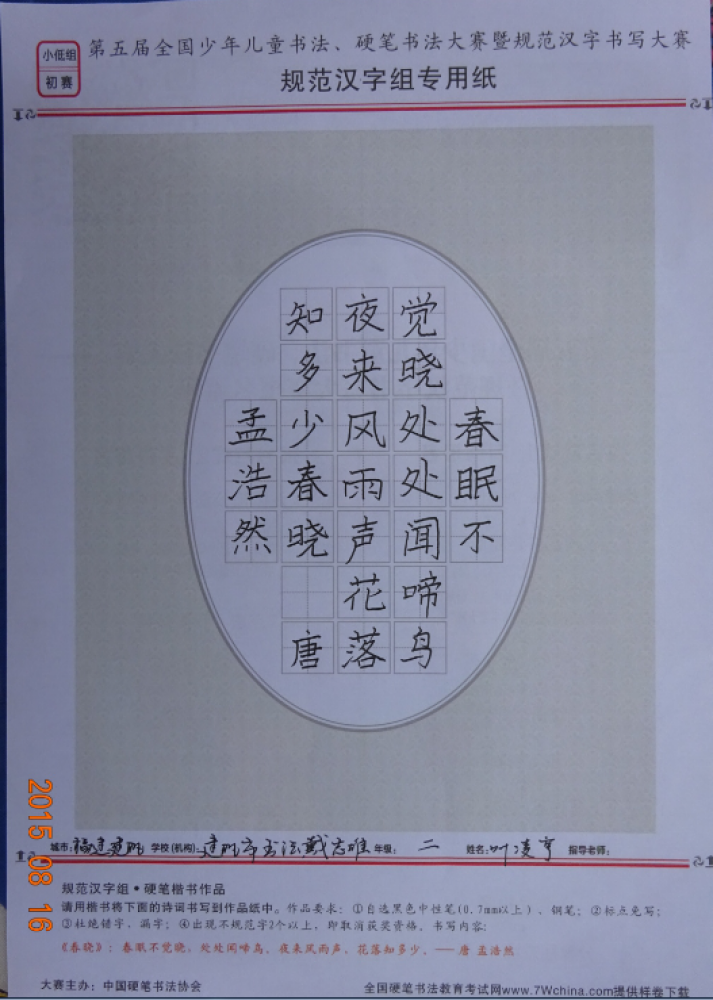 小低组
初赛
第五届全国少年儿童书法、硬笔书法大赛暨规范汉字书写大赛
规范汉字组专用纸
春眠不
觉晓处处闻啼鸟
夜来风雨声花落
知多少春晓 唐
孟浩然
城市:福建建瓯 学校(机构):建瓯市书法戴志雄 年级: 二 姓名:叶凌亨 指导老师:
规范汉字组•硬笔楷书作品
请用楷书将下面的诗词书写到作品纸中。作品要求:①自选黑色中性笔(0.7mm以上)、钢笔;②标点免写;
③杜绝错字、漏字;④出现不规范字2个以上,即取消获奖资格。书写内容:
《春晓》:春眠不觉晓,处处闻啼鸟。夜来风雨声,花落知多少。——唐 孟浩然
大赛主办:中国硬笔书法协会
全国硬笔书法教育考试网www.7Wchina.com提供样卷下载
2015 08 16